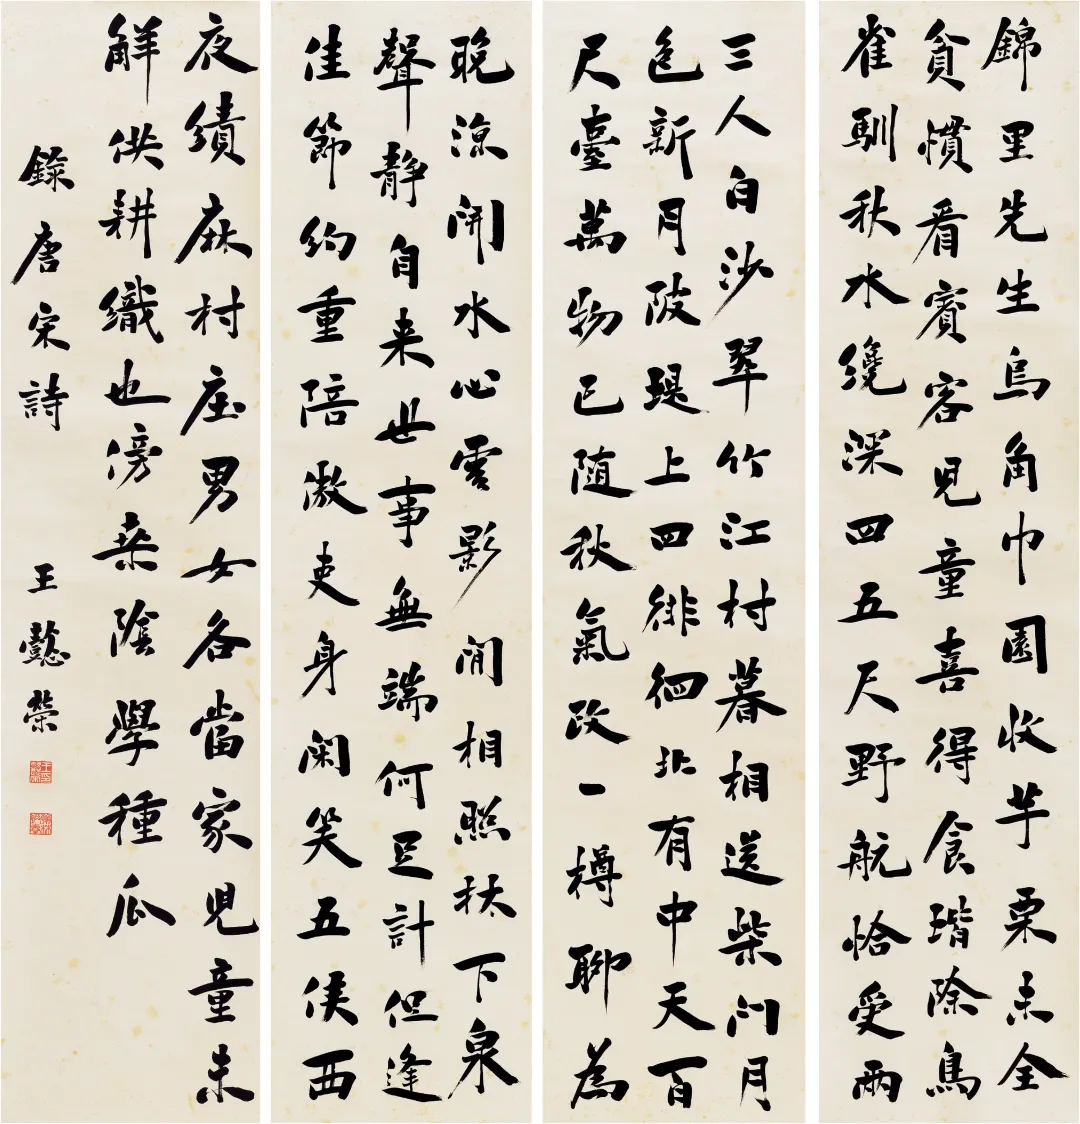 錦里先生烏角巾園收芋栗未全
貧慣看賓客兒童喜得食堦除鳥
雀馴秋水纔深四五尺野航恰受兩
三人白沙翠竹江村暮相送柴門月
色新月陂堤上四徘徊北有中天百
尺臺萬物已隨秋氣改一樽聊為
晚涼開水心雲影閒相照林下泉
聲靜自来世事無端何足計但逢
佳節約重陪傲吏身閑笑五侯西
夜績麻村莊男女各當家兒童未
解供耕織也傍桑陰學種瓜
錄唐宋詩 王懿榮